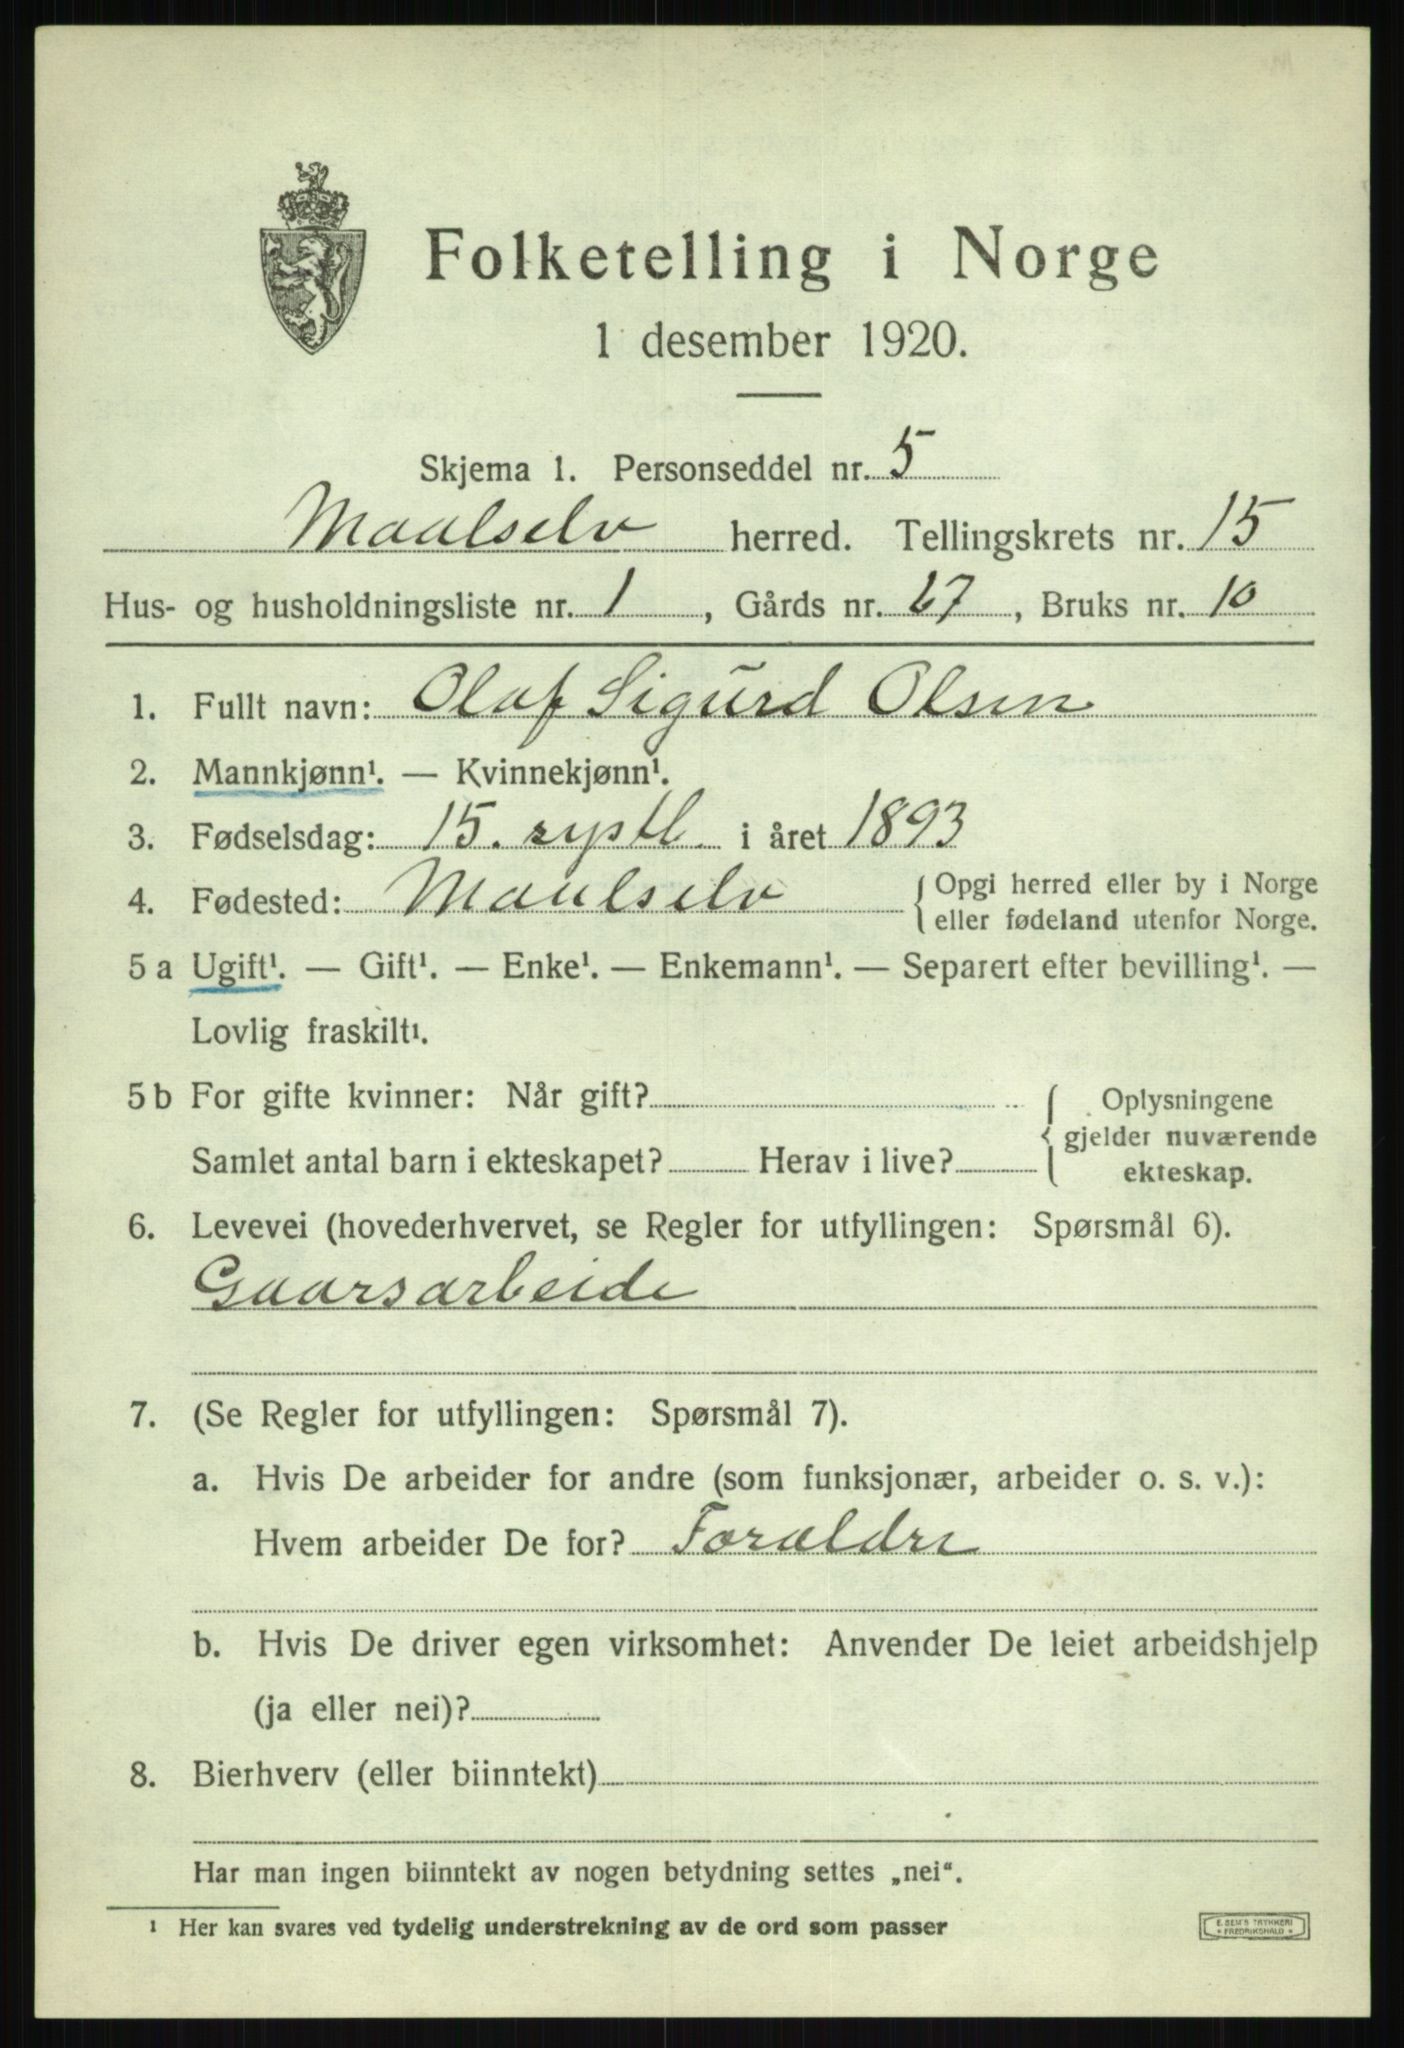 Folketelling i Norge
1 desember 1920.
Skjema 1. Personseddel nr. 5
Maalselv herred. Tellingskrets nr. 15
Hus- og husholdningsliste nr. 1, Gårds nr. 67, Bruks nr. 10
1. Fullt navn: Olaf Sigurd Olsen
2. Mannkjønn¹. — Kvinnekjønn¹.
3. Fødselsdag: 15. i året 1893
4. Fødested: Maalselv {Opgi herred eller by i Norge
eller fødeland utenfor Norge.
5 a Ugift¹. — Gift¹. — Enke¹. — Enkemann¹. — Separert efter bevilling¹. —
Lovlig fraskilt¹.
5 b For gifte kvinner: Når gift? Oplysningene
gjelder nuværende
Samlet antal barn i ekteskapet? Herav i live? ekteskap.
6. Levevei (hovederhvervet, se Regler for utfyllingen: Spørsmål 6).
Gaarsarbeide
7. (Se Regler for utfyllingen: Spørsmål 7).
a. Hvis De arbeider for andre (som funksjonær, arbeider o. s. v.):
Hvem arbeider De for? Forældre
b. Hvis De driver egen virksomhet: Anvender De leiet arbeidshjelp
(ja eller nei)?
8. Bierhverv (eller biinntekt)
Har man ingen biinntekt av nogen betydning settes „nei“.
¹ Her kan svares ved tydelig understrekning av de ord som passer
E. SEM'S TRYKKERI
* FREDRIKSHALD *